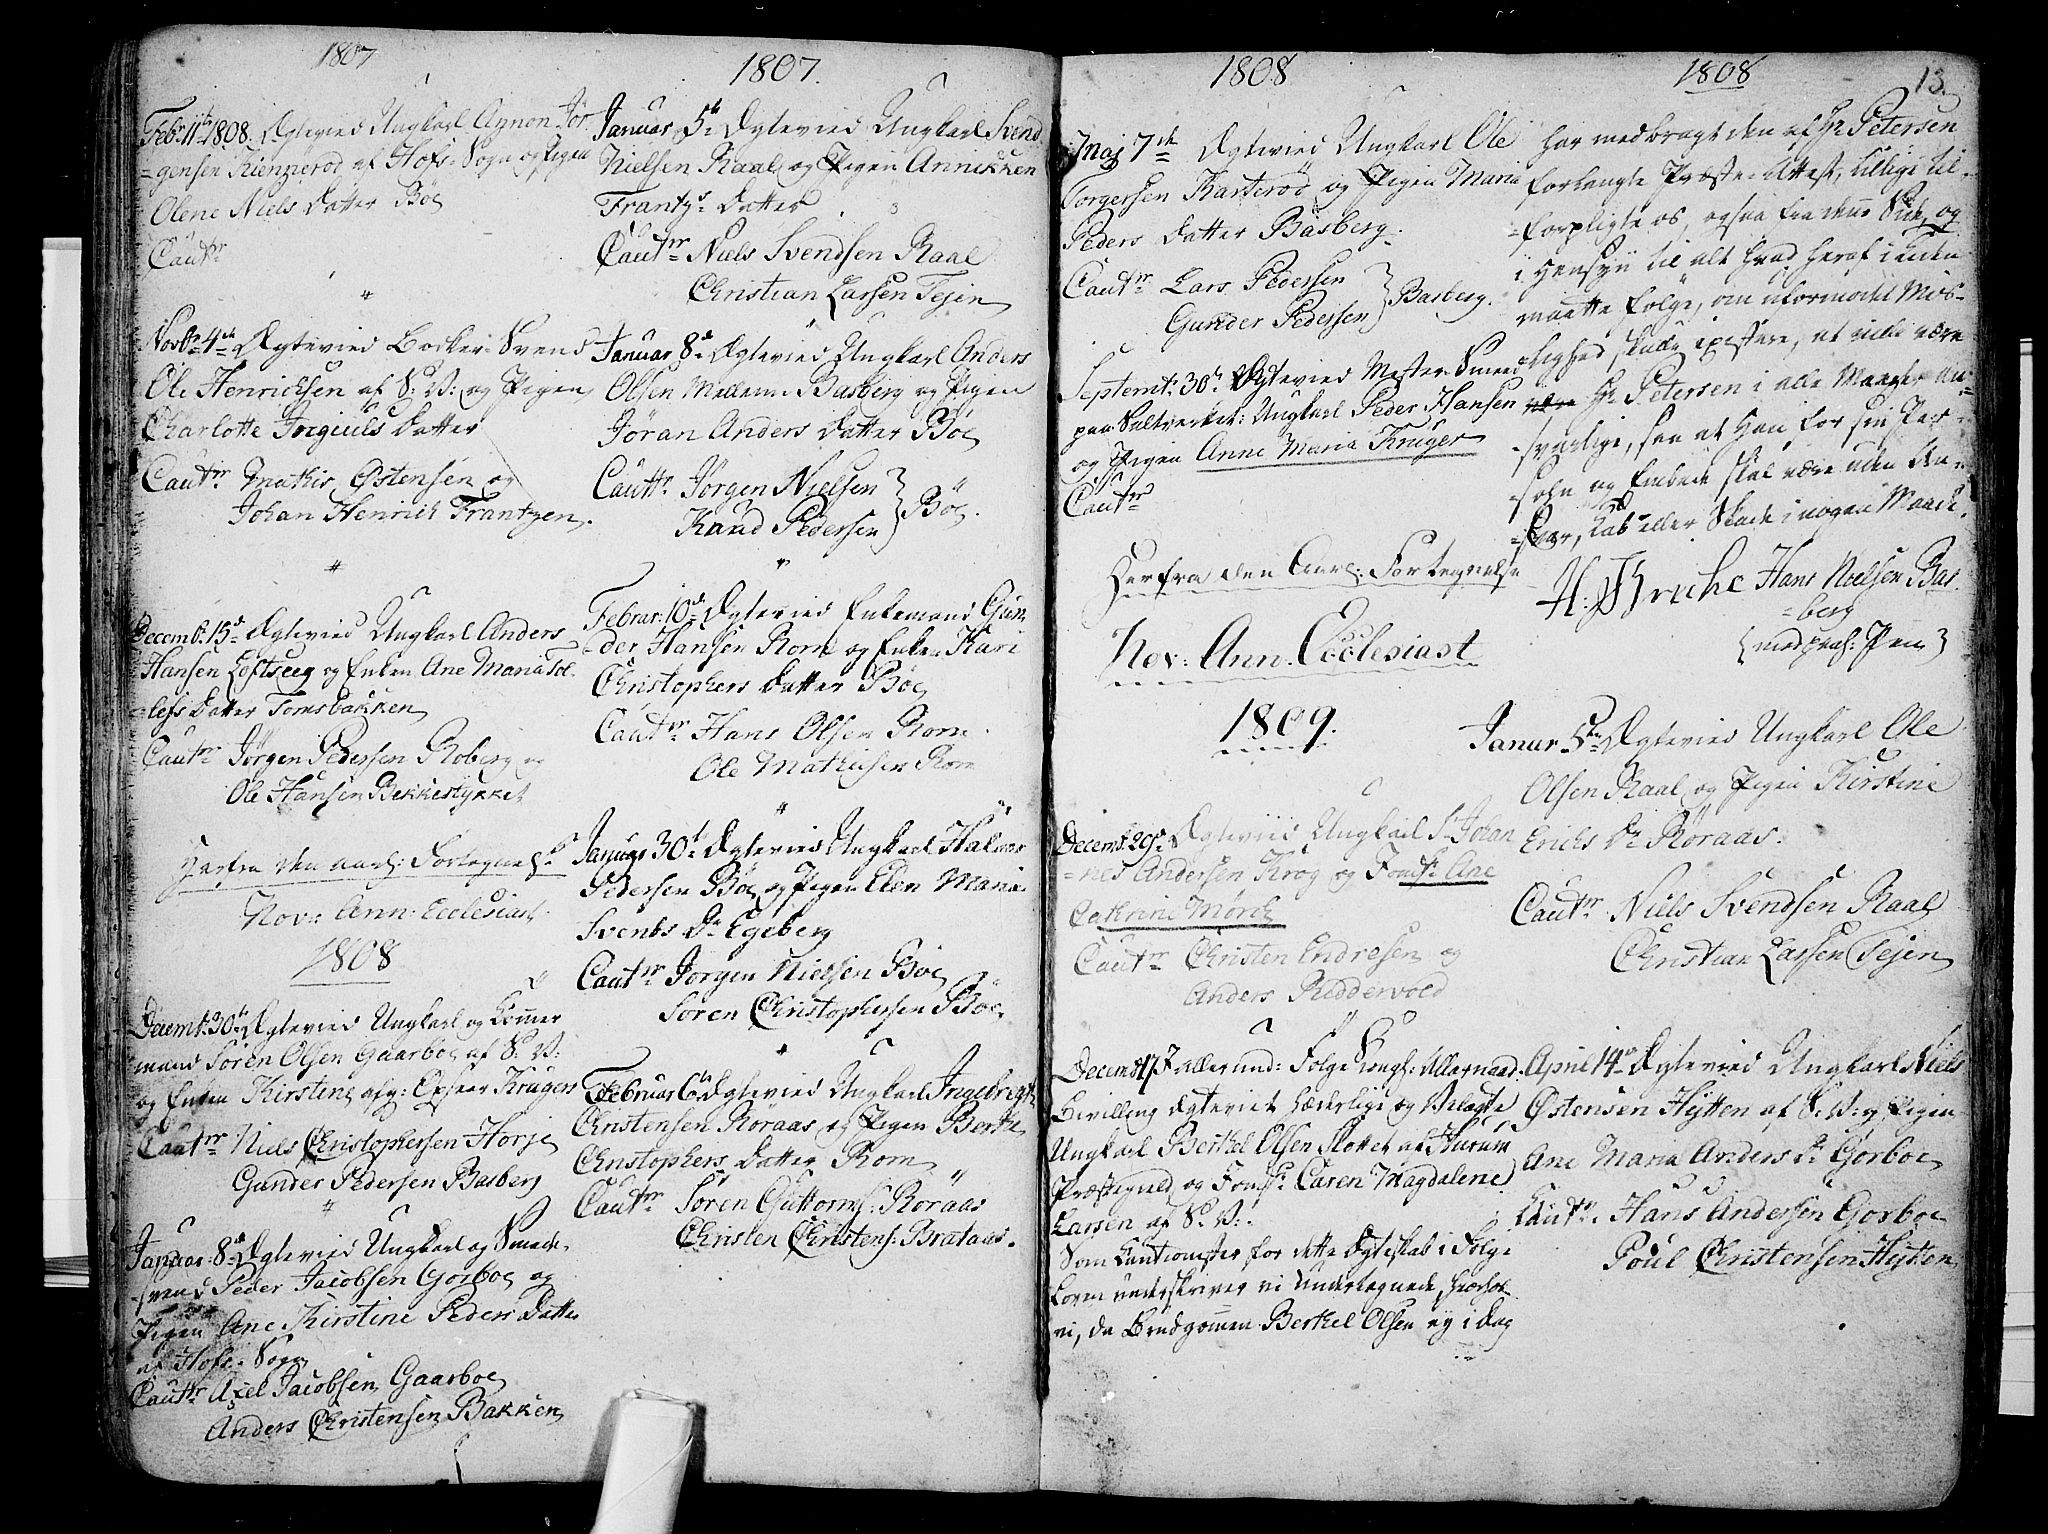 1807
Febr. 11te 1808. Ægteviед Ungkarl Annon Jør
=gensen Kiennerød af Hofs-Sogn og Pigen
Olene Niels Datter Böe
Cautr
Novbr 4de Ægtevied Bødker-Svend
Ole Henrichsen af S: V: og Pigen
Charlotte Jørgiuls Datter
Cautr Mathis Østensen og
Johan Henrich Frantzen.
Decembr. 15d Ægtevied Ungkarl Anders
Hansen Løftseeg og Enken Ane Maria Tol
=lefs Datter Tomsbakken
Cautnr Jørgen Pedersen Roberg og
Ole Hansen Bekkestykket
Herfra den aarl: Fortegnels
Nov: Ann: Ecclesiast.
1808
Decembr. 30te Ægtevied Ungkarl og Tömmer
mand Sören Olsen Gaarboe af S: V:
og Enken Kirstine afg: Casper Krügers
Cautnr Niels Christophersen Horje
Gunder Pedersen Basberg
Januar 8d Ægtevied Ungkarl og Smede-
svend Peder Jacobsen Gorboe og
Pigen Ane Kirstine Peders Datter
af Hofs-Sogn
Cautnr Axel Jacobsen Gaarboe
Anders Christensen Bakken
1807.
Januar 5te Ægtevied Ungkarl Svend
Nielsen Raal og Pigen Annikken
Frantzs Datter
Cautnr Niels Svendsen Raal
Christian Larsen Tejen
Januar 8d Ægtevied Ungkarl Anders
Olsen Mellem-Basberg og Pigen
Jöran Anders Datter Böe
Cautr Jörgen Nielsen
Knud Pedersen } Böe.
Februar: 10de Ægtevied Enkemand Gun
der Hansen Rom og Enken Kari
Christophers Datter Böe
Cautnr Hans Olsen Rom
Ole Mathiesen Rom
Januar 30te Ægtevied Ungkarl Halvor
Pedersen Böe og Pigen Elen Maria
Svends Dr Egeberg
Cautnr Jörgen Nielsen Böe
Sören Christophersen Böe
Februar 6te Ægtevied Ungkarl Ingebrigt
Christensen Röraas og Pigen Berthe
Christophers Datter Rom
Cautnr Sören Guttorms: Röraas
Christen Christens: Brataas.
1808
Maj 7de Ægtevied Ungkarl Ole
Torgersen Karteröd og Pigen Maria
Peders Datter Basberg.
Cautnr Lars Pedersen
Gunder Pedersen } Basberg.
Septembr. 30te Ægtevied Mester-Smed
paa Saltverket: Ungkarl Peder Hansen
og Pigen Anne Maria Kruger
Cautnr
Herfra den Aarl: Fortegnelse
Nov: Ann. Ecclesiast
1809.
Decembr. 29de Ægtevied Ungkarl Sr Johan
=nes Andersen Krog og Jomfr: Ane
Cathrine Mörch
Cautnr Christen Endresen og
Anders Riddervold
Decembr 17 Ifl allerund: Følge Kongl: Allernaad:
Bevilling Ægteviet Hæderlige og Velagte
Ungkarl Berthel Olsen Slottet af Hurum
Præstegield og Jomfr: Caren Magdalene
Larsen af S: V:
Som Cautionister for dette Ægteskab i Følge
Loven underskriver vi Undertegnede, hvorhos
vi, da Brudgommen Berthel Olsen ej i Dag
1808 13.
har medbragt den af Hr Petersen
forlangte Præste-Attest, tillige til-
=forpligte os, ogsaa fra denne Side, og
i Hensyn til alt hvad heraf i Tiden
maatte følge, om uformodet Mis-
lighed skulde existere, at ville være
Hr Petersen i alle Maader an-
=svarlige, saa at Han for sin Per-
=sohn og Embede skal være uden An-
=svar, Tab eller Skade i nogen Maade.
H: Bruche Hans Nielsen Bas
=berg
{med paah: Pen}
Januar 5te Ægtevied Ungkarl Ole
Olsen Raal og Pigen Kirstine
Erichs Dr Röraas.
Cautnr Niels Svendsen Raal
Christian Larsen Tejen
April 14de Ægtevied Ungkarl Niels
Östensen Hytten af S: V: og Pigen
Ane Maria Anders Dr Gorboe
Cautnr. Hans Andersen Gorboe
Poul Christensen Hytten